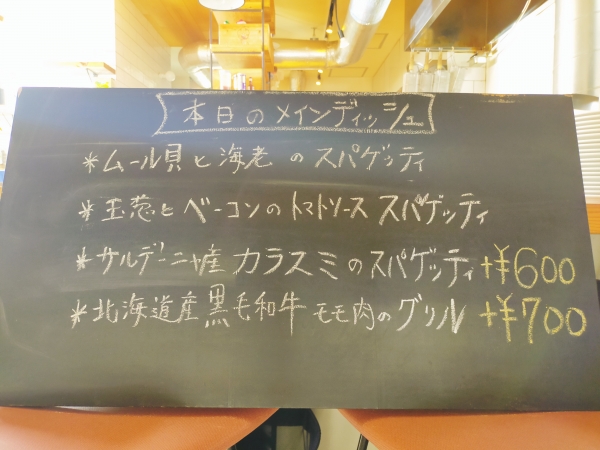 本日のメインディッシュ
*ムール貝と海老のスパゲッティ
*玉葱とベーコンのトマトソーススパゲッティ
*サルデーニャ産カラスミのスパゲッティ+¥600
*北海道産黒毛和牛モモ肉のグリル+¥700